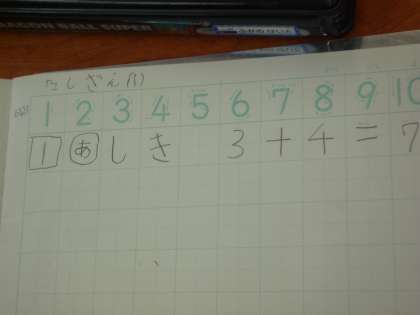 DRAGON BALL SUPER
たしざん(1)
1 2 3 4 5 6 7 8 9 10
1 あ しき 3+4=7